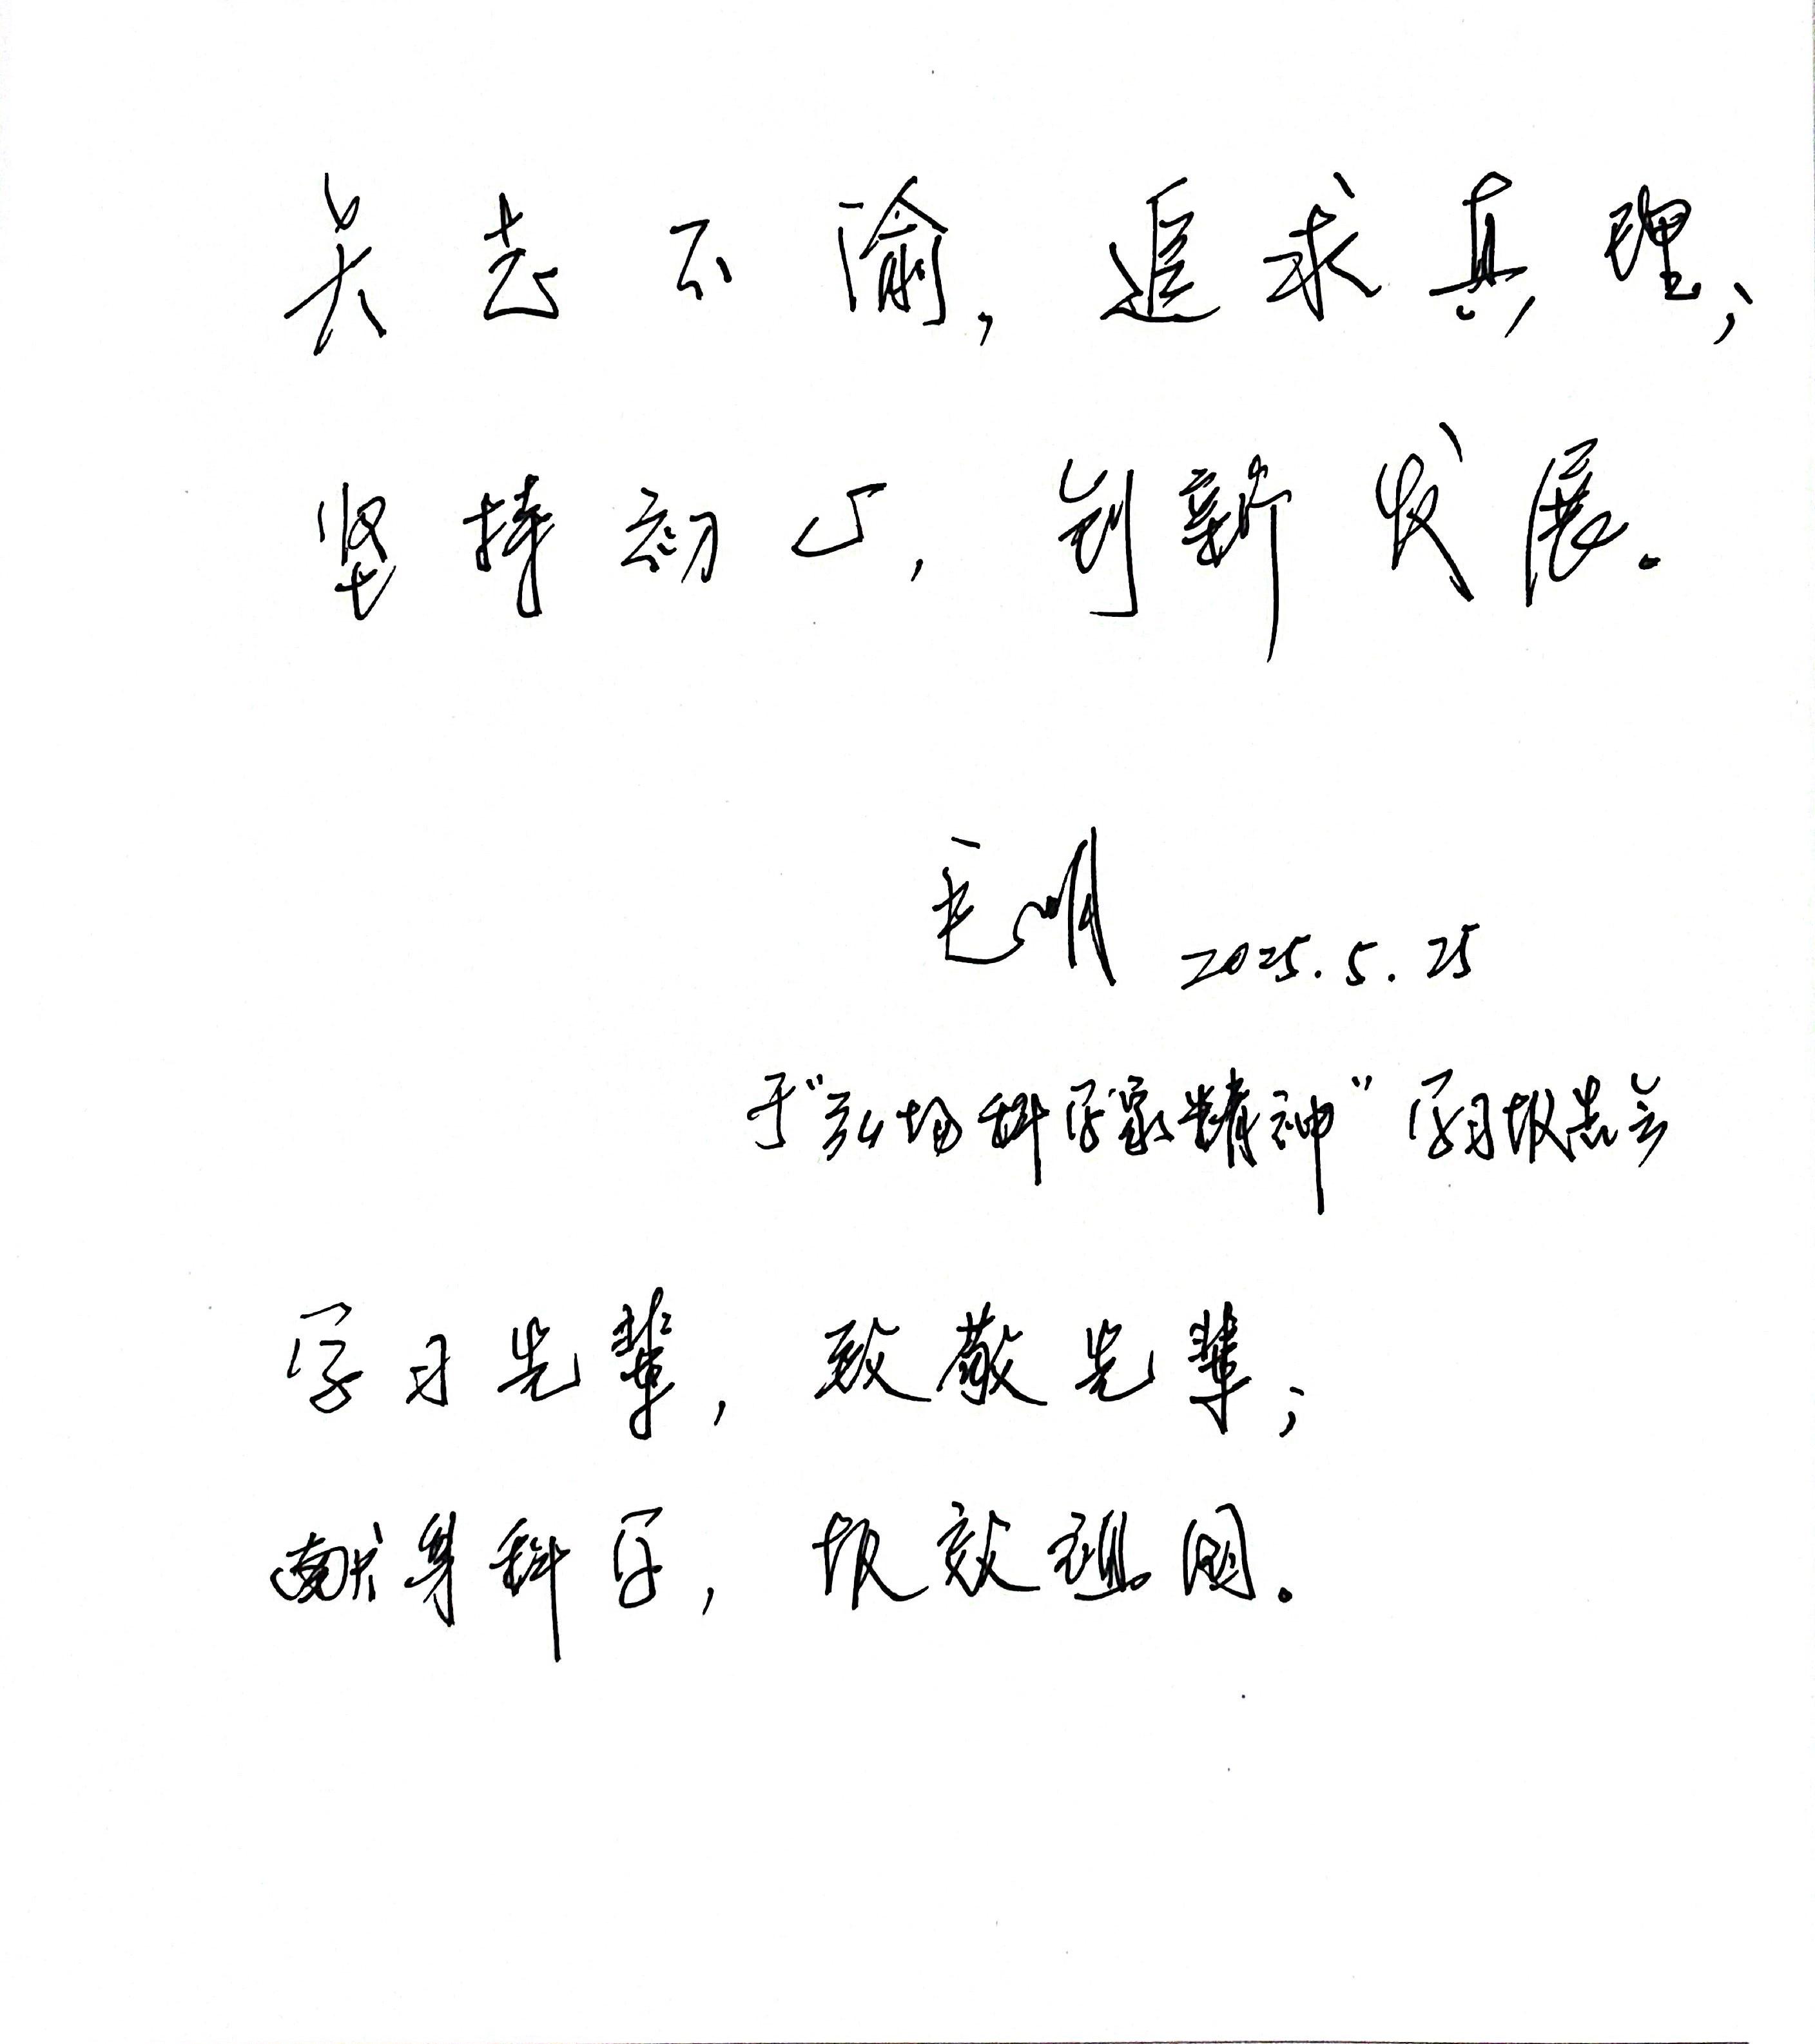 矢志不渝，追求真理；
坚持初心，创新发展。
毛明 2025.5.25
于“弘扬科学家精神”学习报告会
学习先辈，致敬先辈；
献身科学，报效祖国。